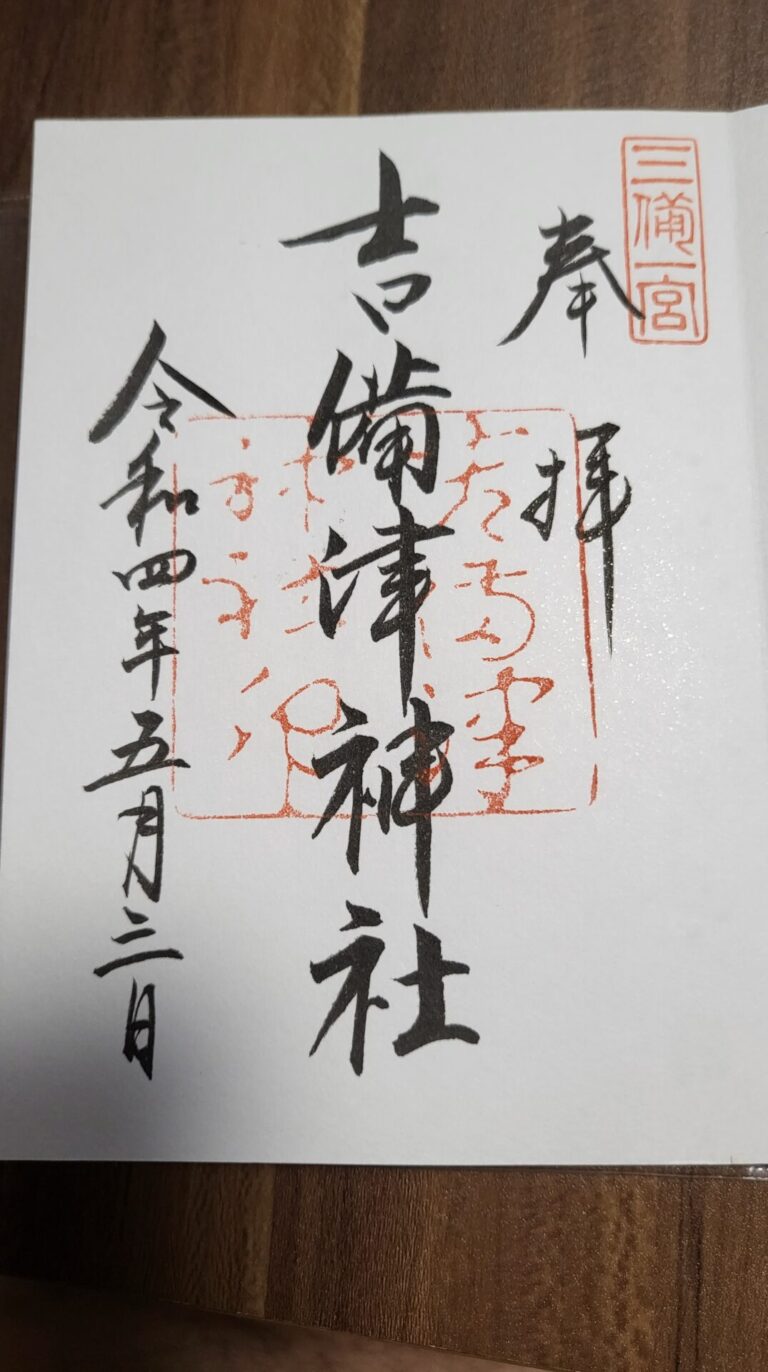 三備一宮
奉拝
吉備津神社
令和四年五月三日